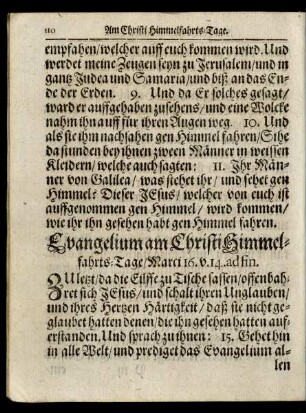 110 Am Christi Himmelfahrts-Tage.
empfahen/welcher auff euch kommen wird. Und
werdet meine Zeugen seyn zu Jerusalem/und in
gantz Judea und Samaria/und biß an das En-
de der Erden. 9. Und da Er solches gesagt/
ward er auffgehaben zusehens/und eine Wolcke
nahm ihn auff für ihren Augen weg. 10. Und
als sie ihm nachsahen gen Himmel fahren/Sihe
da stunden bey ihnen zween Männer in weissen
Kleidern/welche auch sagten: 11. Ihr Män-
ner von Galilea/was stehet ihr/und sehet gen
Himmel? Dieser JEsus/welcher von euch ist
auffgenommen gen Himmel/wird kommen/
wie ihr ihn gesehen habt gen Himmel fahren.
Evangelium am Christi Himmel-
fahrts-Tage/Marci 16. v. 14. ad fin.
ZUletzt/da die Eilffe zu Tische sassen/offenbah-
ret sich JEsus/und schalt ihren Unglauben/
und ihres Hertzen Härtigkeit/daß sie nicht ge-
glaubet hatten denen/die ihn gesehen hatten auf-
erstanden. Und sprach zu ihnen: 15. Gehet hin
in alle Welt/und prediget das Evangelium al-
len